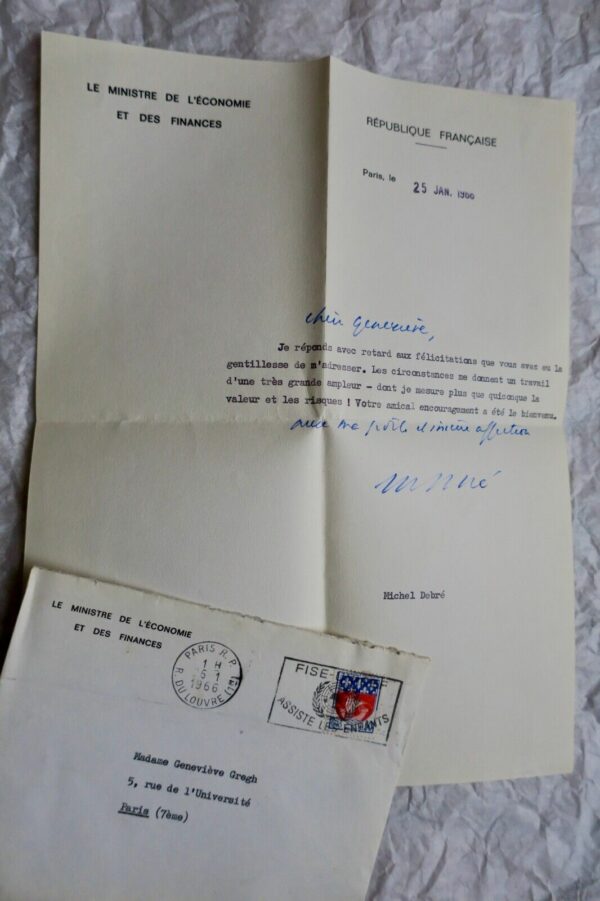 LE MINISTRE DE L'ÉCONOMIE
ET DES FINANCES
RÉPUBLIQUE FRANÇAISE
Paris, le 25 JAN. 1966
chère Geneviève,
Je réponds avec retard aux félicitations que vous avez eu la
gentillesse de m'adresser. Les circonstances me donnent un travail
d'une très grande ampleur - dont je mesure plus que quiconque la
valeur et les risques ! Votre amical encouragement a été le bienvenu.
avec ma fidèle et sincère affection
Michel Debré
LE MINISTRE DE L'ÉCONOMIE
ET DES FINANCES
PARIS R.P.
1 H
1966
R. DU LOUVRE
FISE-
ASSISTE LES ENFANTS
Madame Geneviève Gregh
5, rue de l'Université
Paris (7ème)